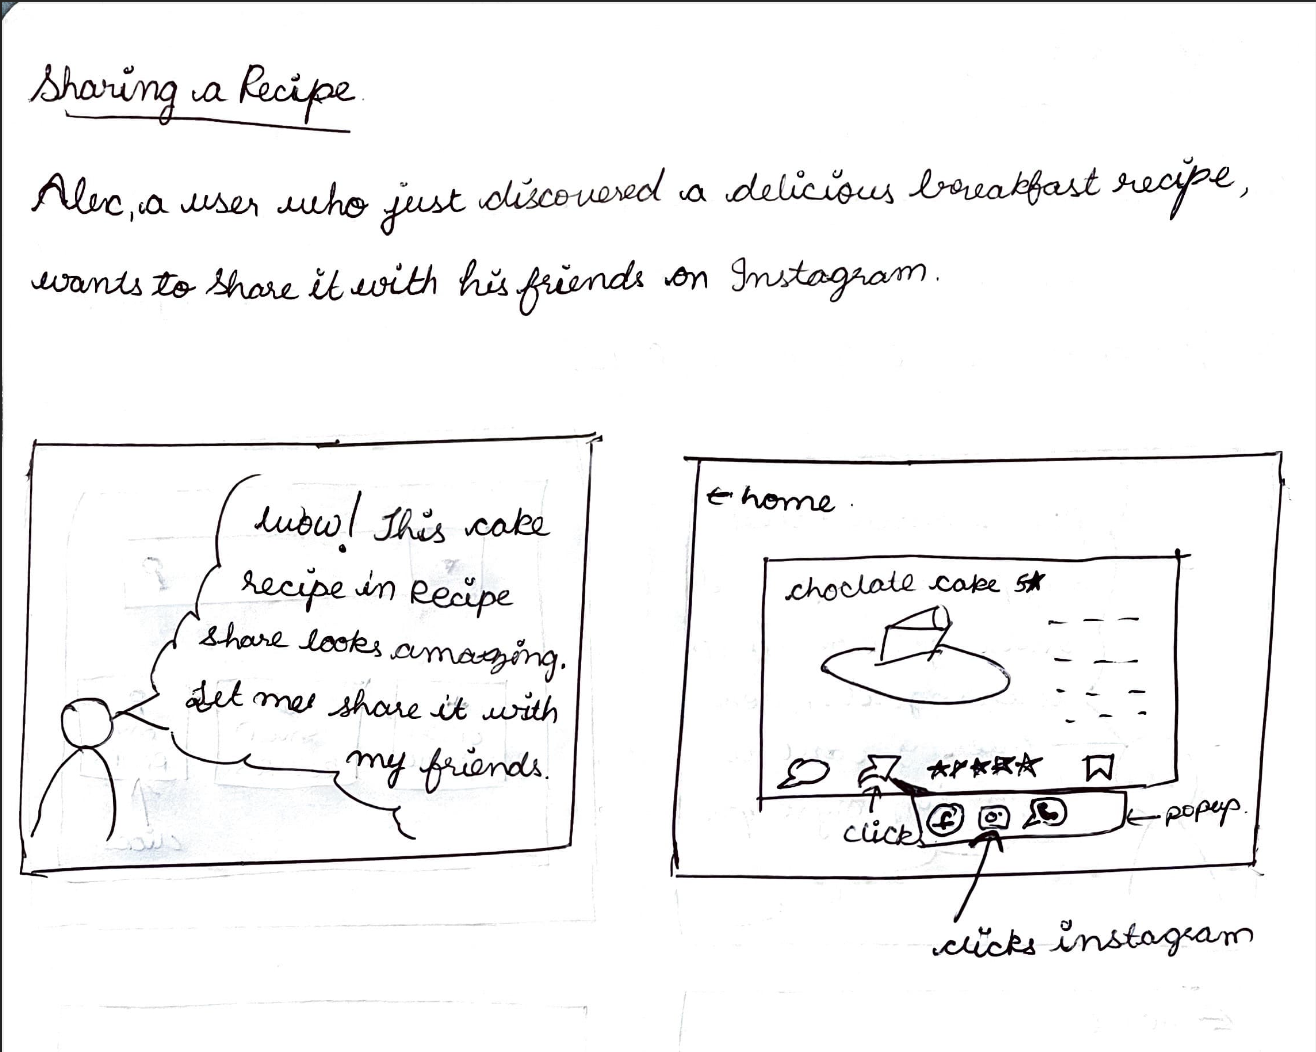 Sharing a Recipe.
Alex, a user who just discovered a delicious breakfast recipe,
wants to share it with his friends on Instagram.
wow! This cake
recipe in Recipe
share looks amazing.
Let me share it with
my friends.
← home.
choclate cake 5★
click
← popup.
clicks instagram